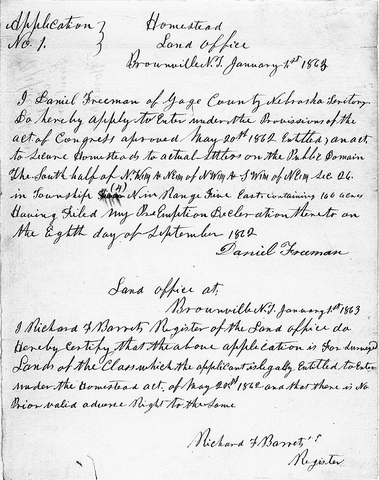 Application
No. 1.
Homestead
Land Office
Brownville N.T. January 1st 1863
I Daniel Freeman of Gage County Nebraska Territory
Do hereby apply to Enter under the Provisions of the
act of Congress aproved May 20th 1862 Entitled, an act
to Secure Homesteads to actual Settlers on the Public Domain
The South half of N.W¼ & NE¼ of N.W¼ & S.W¼ of NE¼ Sec. 26.
in Township (4) N in Range Five East containing 160 acres
Having Filed my PreEmption Declaration thereto on
the Eighth day of September 1862
Daniel Freeman
Land office at
Brownville N.T. January 1st 1863
I Richard F Barrett Register of the Land office do
Hereby Certify that the above application is For Surveyed
Lands of the Class which the applicant is legally Entitled to Enter
under the Homestead act, of May 20th 1862 and that there is No
Prior valid adverse Right to the Same
Richard F Barrett
Register